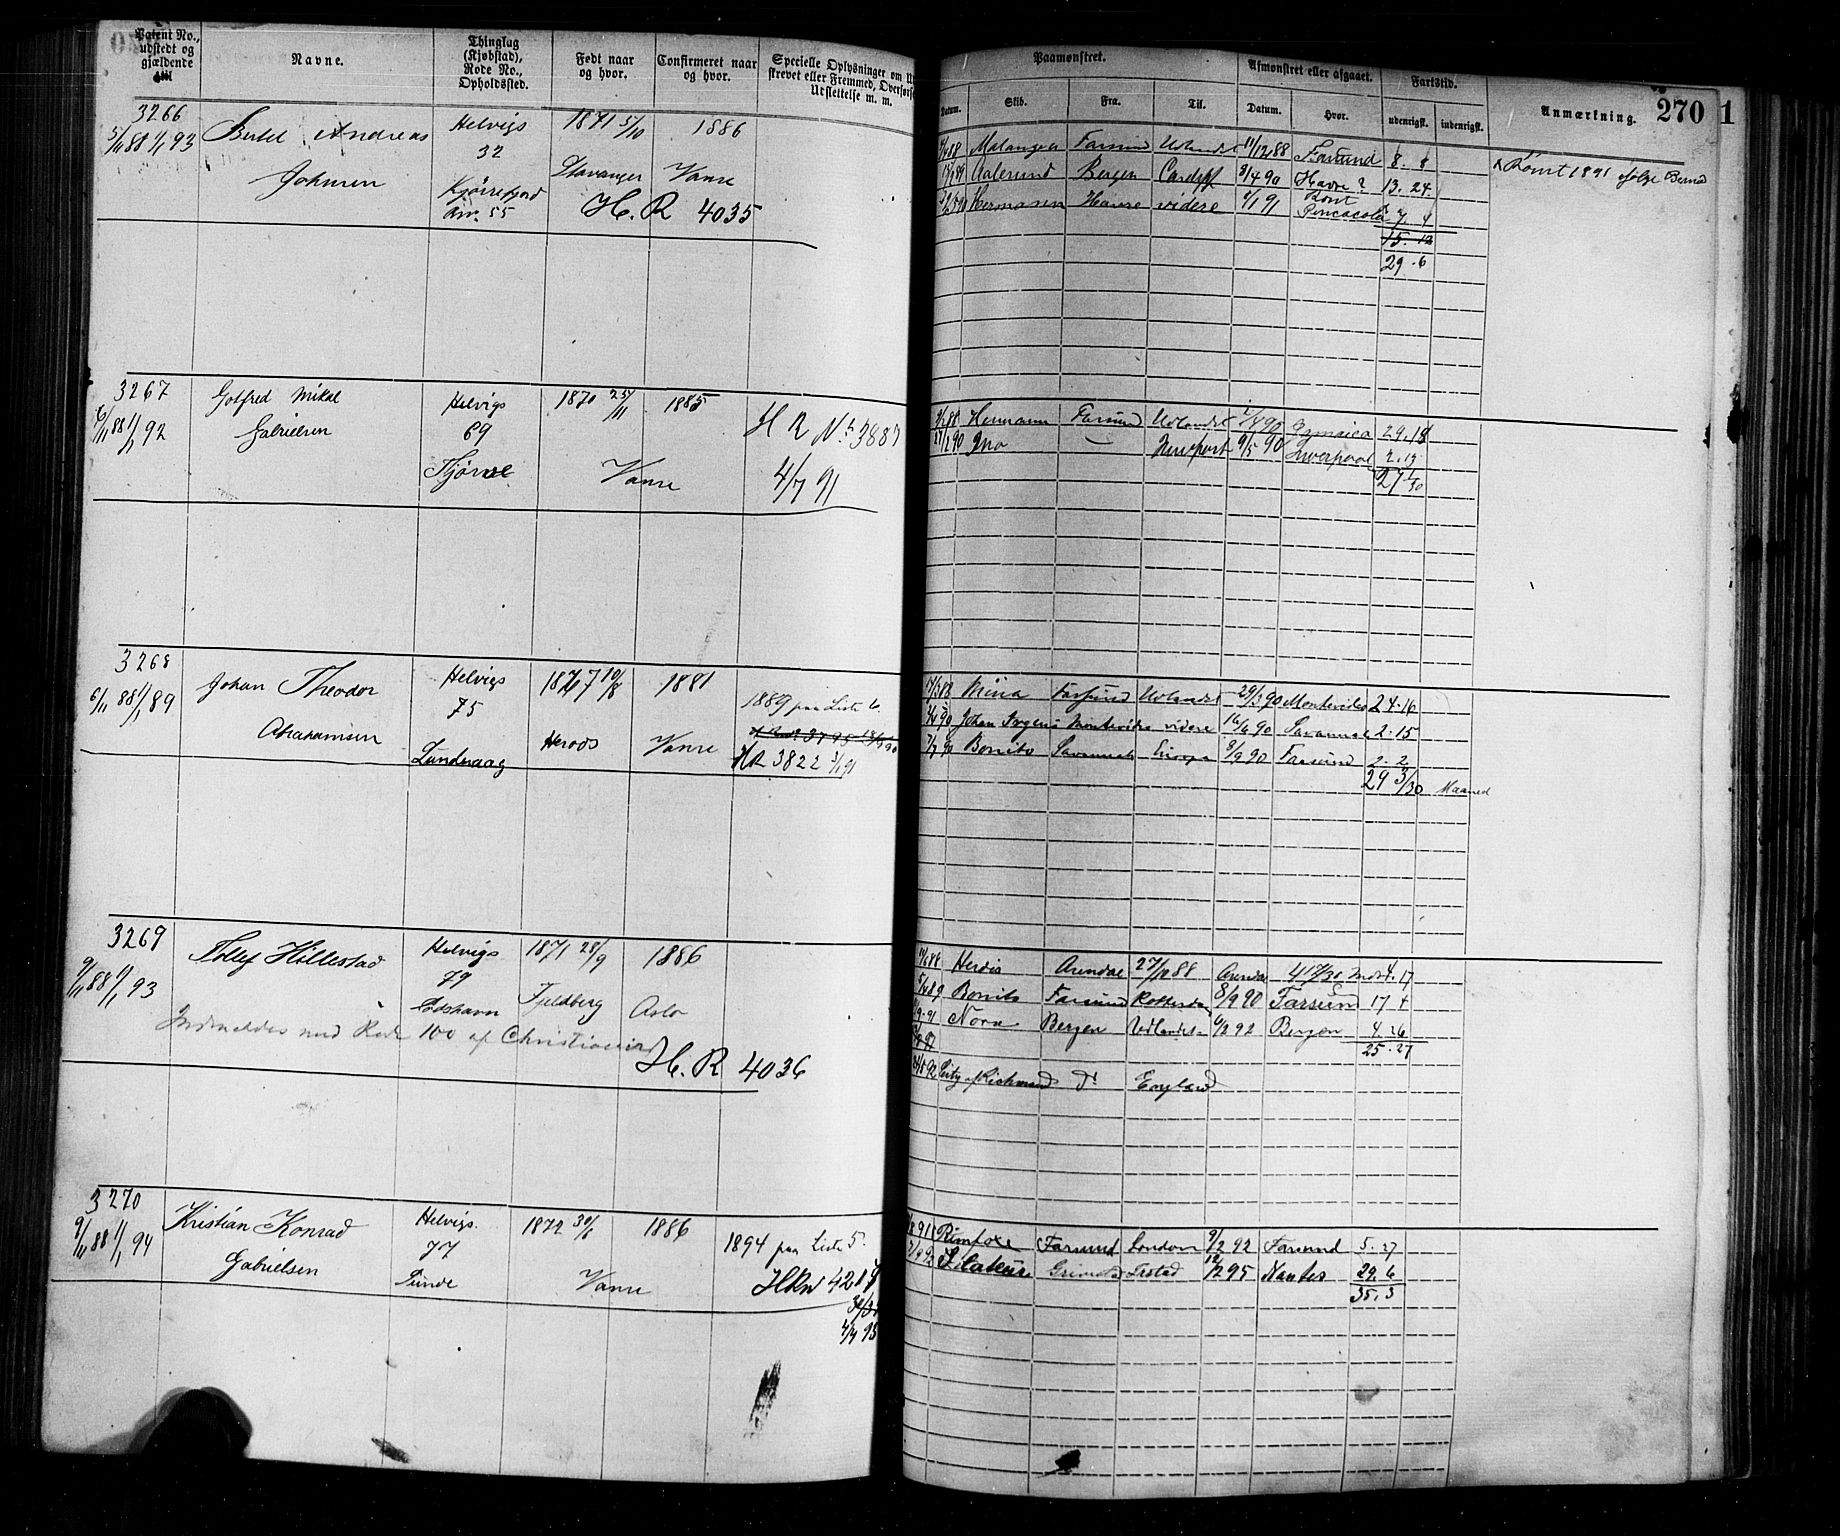 Patent No., udstedt og gjældende til
Navne.
Thinglag (Kjøbstad), Rode No., Opholdssted.
Født naar og hvor.
Confirmeret naar og hvor.
Specielle Oplysninger om
skrevet eller Fremmed, Overførs
Utslettelse m. m.
Paamønstret.
Afmønstret eller afgaaet.
Fartstid.
Datum. Skib. Fra. Til. Datum. Hvor. udenrigsk. indenrigsk.
Anmærkning.
270 1
3266
5/11 88 1/1 93 Andreas Johnsen
Helvigs 32
Kjørrefjord
1871 5/10 Stavanger
1886 Vanse
H. R 4035
Malangen Farsund Udlandet 11/12 88 Farsund 8. 8
Aalesund Bergen Cardiff 8/4 90 Havre 13. 24
Hermann Havre videre 1/1 91 Rømt Pencacola 7. 4
15. 12
29. 6
Rømt 1891
3267
6/11 88 1/1 92 Gotfred Mikal
Gabrielsen
Helvigs 69
1870 25/11
1885
Vanse
H R No 3887
4/7 91
Hermann Farsund Udlandet 29. 18
27/2 90 Ino Newport 9/5 90 Liverpool 2. 13
27 1/30
3268
6/11 88 1/1 89 Johan Theodor
Abrahamsen
Helvigs 75
Lundevaag
1867 10/8 Herods
1881 Vanse
1889 paa Liste 6.
HR 3822 3/1 91
Mina Farsund Udlandet 29/3 90 Montevideo 24. 16
Johan Irgens Montevideo videre 16/6 90 Savannah 2. 15
7/7 90 Bonito Savannah Europa 8/9 90 Farsund 2. 2
29 3/30 Maaned
3269
9/11 88 1/1 93 Tollef Hillestad
Helvigs 79
Lodshavn
1871 28/9 Fjeldberg
1886 Oslo
Indmeldes med Rode 100 af Christiania
H. R 4036
Herdis Arendal 27/10 88 Arendal 4 17/30 Mdr 4. 17
Bonito Farsund Rotterdam 8/9 90 Farsund 17 4
Nora Bergen Udlandet 6/2 92 Bergen 4. 26
25. 27
City of Richmond Do England
3270
9/11 88 1/1 94 Kristian Konrad
Gabrielsen
Helvigs. 77
1872 30/6
1886
Vanse
1894 paa Liste 5.
4/4 95
Farsund London 9/2 92 Farsund 5. 27
12/2 95 Nantes 29. 6
35. 3